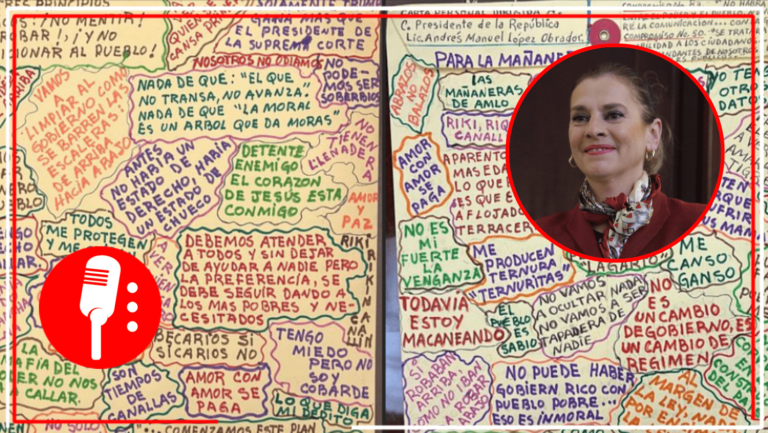 RES PRINCIPIOS
¡NO MENTIR!
BAR!, ¡Y NO
IONAR AL PUEBLO!
CANSA PRIM
SOLAMENTE TRUMP
GANA MAS QUE
EL PRESIDENTE DE
LA SUPREMA CORTE
NOSOTROS NO ODIAMOS
VAMOS
LIMPIAR AL
GOBIERNO, COMO
SE BARREN LAS
ESCALERAS
DE ARRIBA
HACIA ABAJO
NADA DE QUE: "EL QUE
NO TRANSA, NO AVANZA"
NADA DE QUE "LA MORAL
ES UN ARBOL QUE DA MORAS"
NO PODE-
MOS SER
SOBERBIOS
NO
TIENEN
LLENADERA
ANTES
NO HABÍA UN
ESTADO DE
DERECHO, HABÍA
UN ESTADO DE
CHUECO
DETENTE
ENEMIGO
EL CORAZON
DE JESUS ESTA
CONMIGO
AMOR
Y
PAZ
TODOS
ME PROTEGEN
Y ME
DEBEMOS ATENDER
A TODOS Y SIN DEJAR
DE AYUDAR A NADIE PERO
LA PREFERENCIA, SE
DEBE SEGUIR DANDO A
LOS MAS POBRES Y NE-
CESITADOS
PECARIOS SI
SICARIOS NO
TENGO
MIEDO PERO NO
SOY
COBARDE
LA
AFIA DEL
ER NO NOS
CALLAR.
SON
TIEMPOS
DE
CANALLAS
AMOR CON
AMOR SE
PAGA
LO QUE DIGA
MI DEDITO
NO SOLO
"...COMENZAMOS ESTE PLAN
CARTA PERSONAL DIRIGIDA
C. Presidente de la República
Lic. Andrés Manuel López Obrador.
PARA LA MAÑANE
ABRAZOS
NO
BALAZOS
LAS
MAÑANERAS
DE AMLO
RIKI, RIQ
CANALL
AMOR
CON
AMOR
SE
PAGA
APARENTO
MAS EDA
LO QUE P
ES QUE E
AFLOJADO
TERRACER
NO ES
MI
FUERTE
LA
VENGANZA
ME
PRODUCEN
TERNURA
"TERNURITAS"
LAGARTO
ME
CANSO
GANSO
TODAVIA
ESTOY
MACANEANDO
EL
PUEBLO
ES
SABIO
NO VAMOS
A OCULTAR NADA
NO VAMOS A SER
TAPADERA DE
NADIE
NO
ES
UN CAMBIO
DE GOBIERNO, ES
UN CAMBIO DE
REGIMEN
SI
ROBABAN
ARRIBA
COMO NO IBAN
A ROBAR
ABAJO
NO PUEDE HABER
GOBIERN RICO CON
PUEBLO POBRE...
ESO ES INMORAL
AL
MARGEN DE
LA LEY: NADA